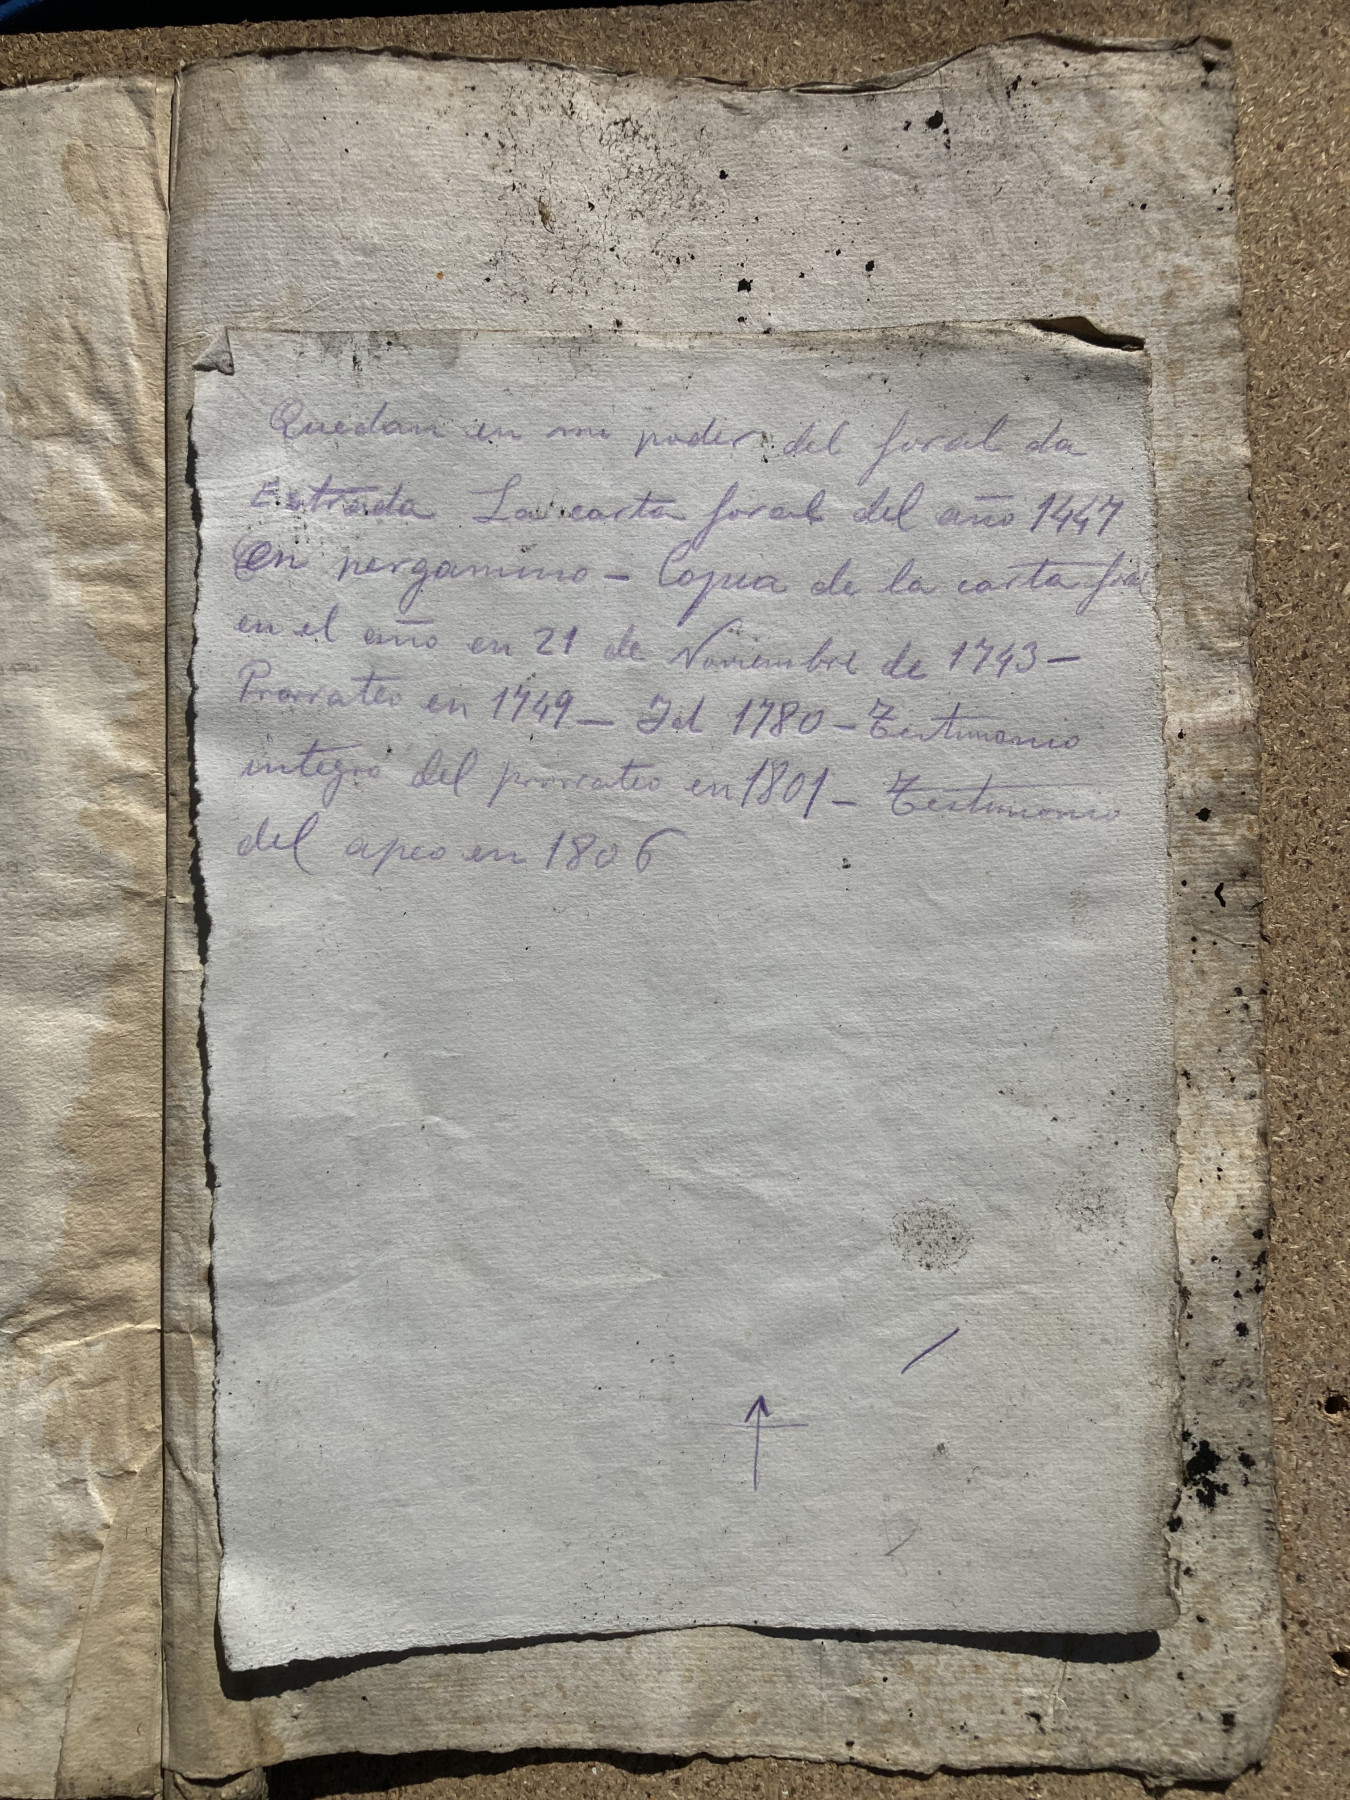 Quedan en mi poder del foral da
Estrada La carta foral del año 1447
En pergamino – Copia de la carta foral
en el año en 21 de Noviembre de 1743 –
Prorrateo en 1749 – Id 1780 – Testimonio
integro del prorrateo en 1801 – Testimonio
del apeo en 1806